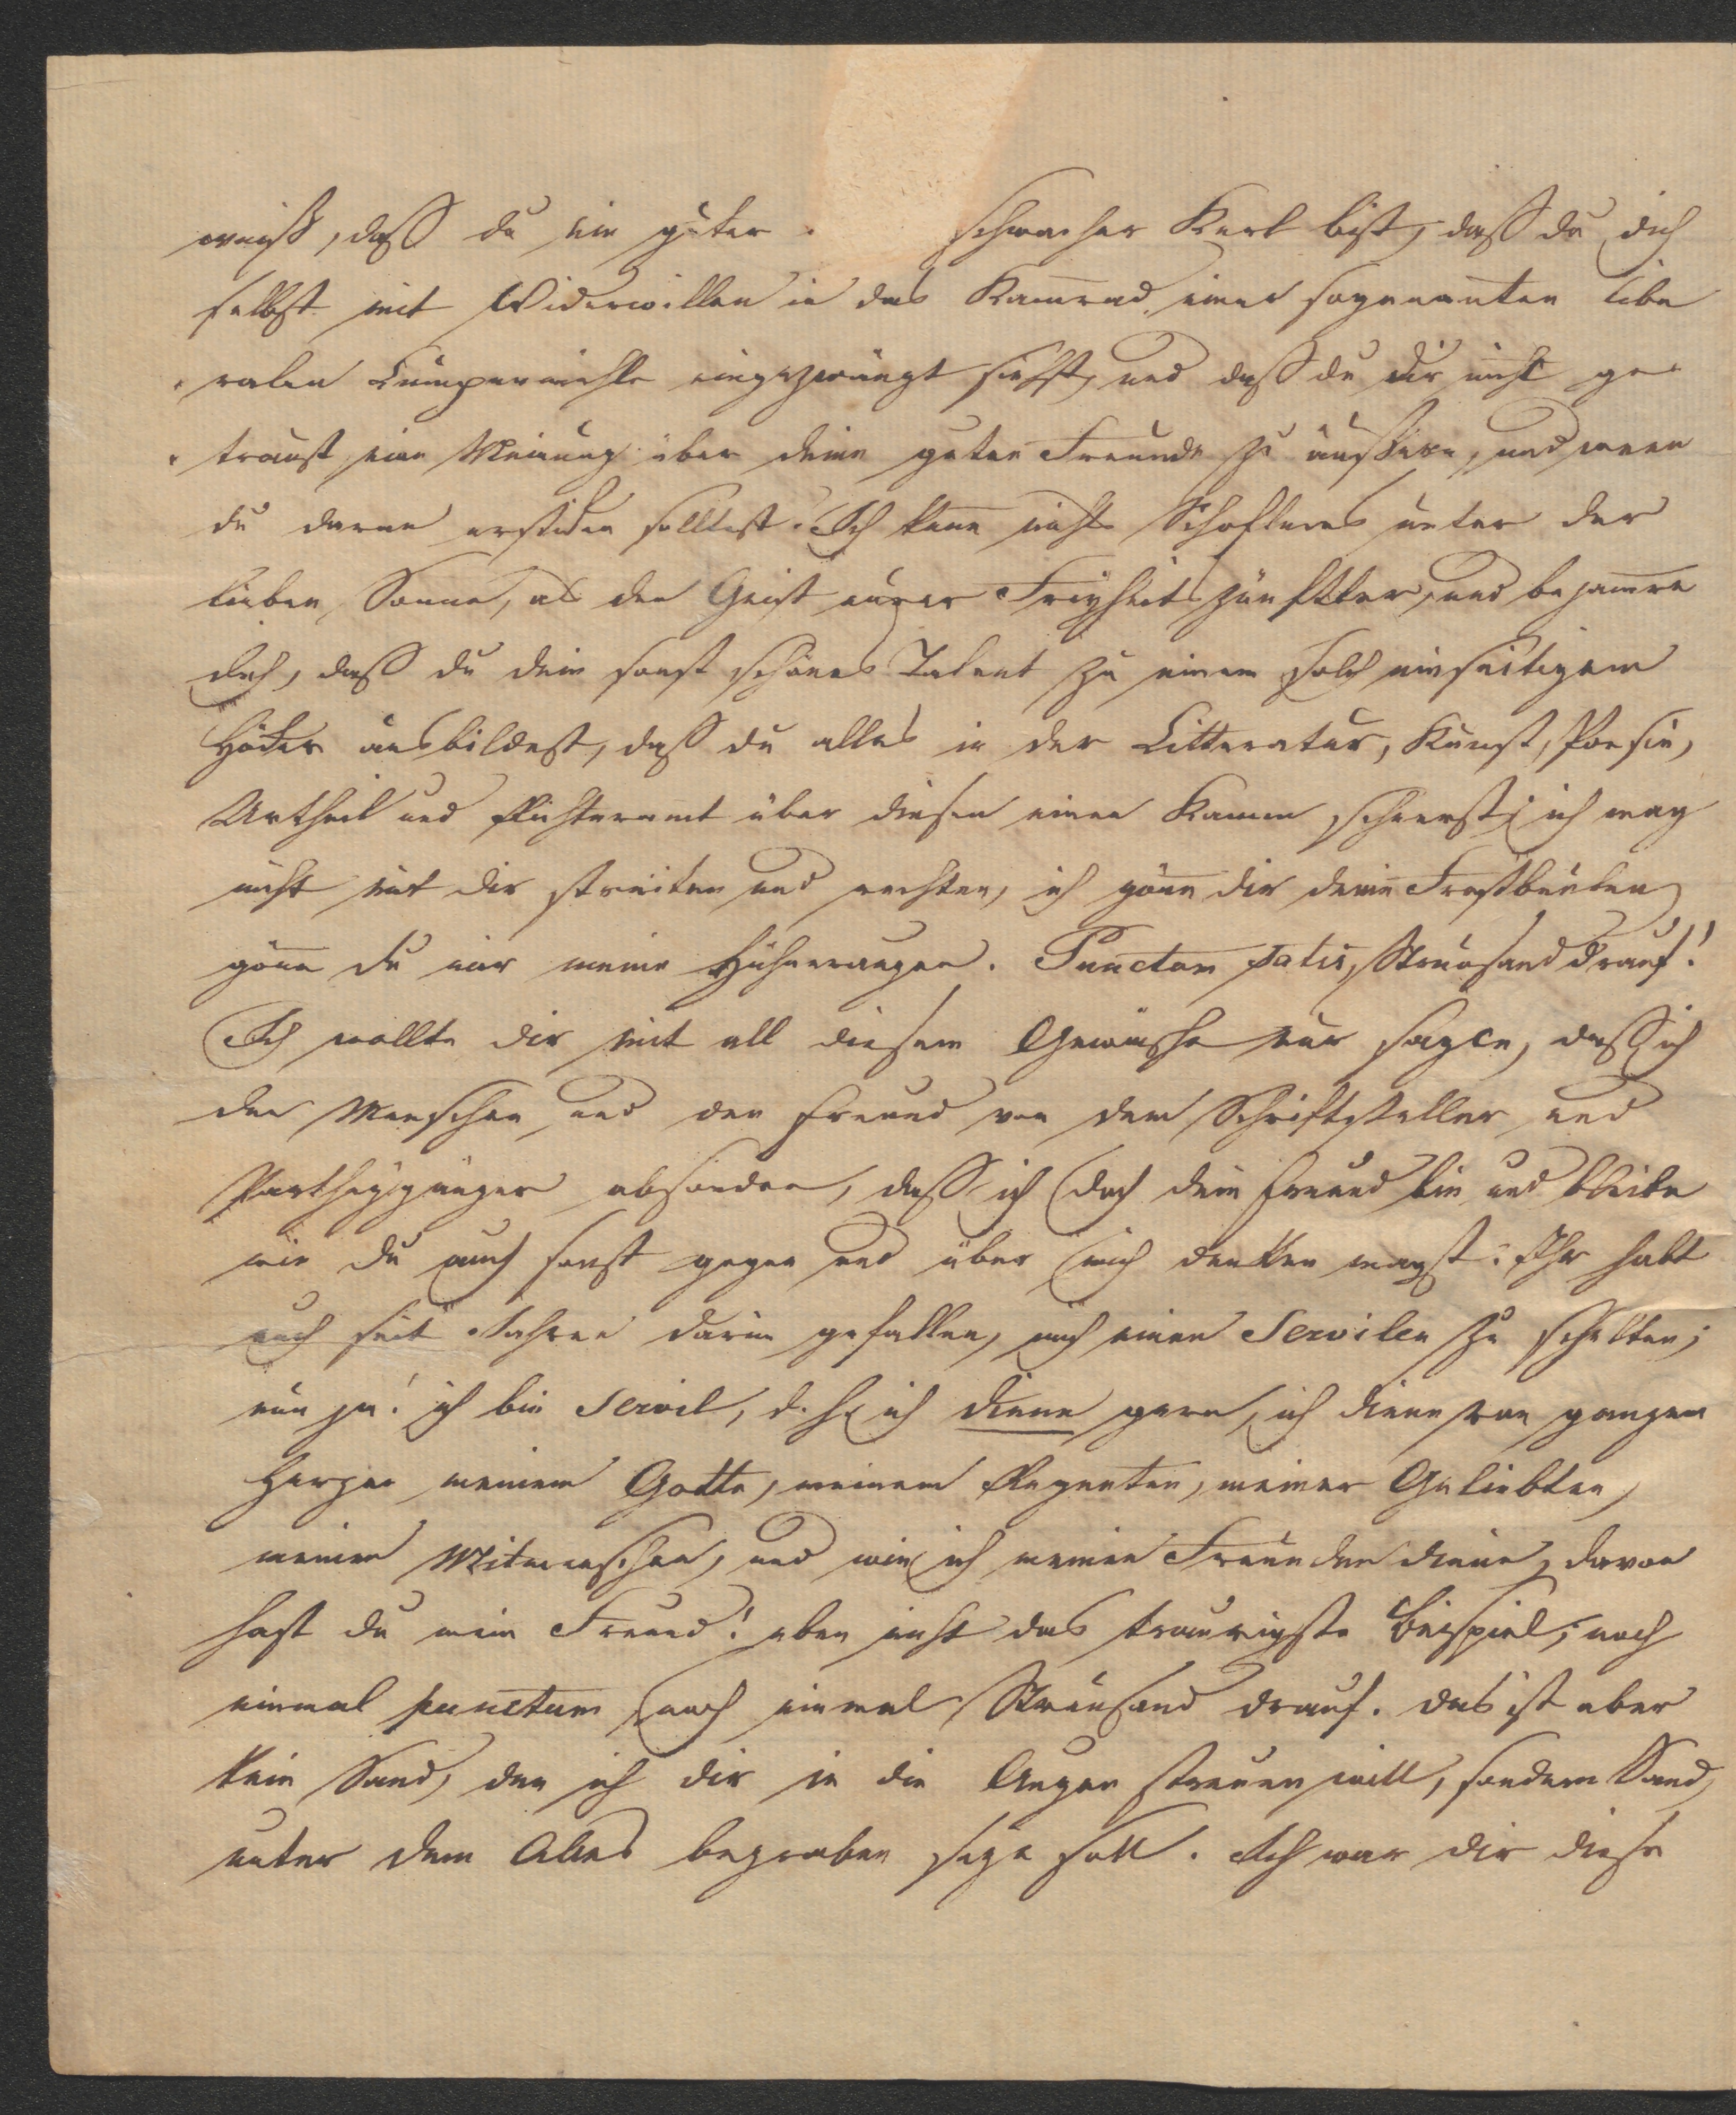 weiß, daß du ein guter schwacher Kerl bist, daß du dich
selbst mit Widerwillen in das Kammrad einer sogenannten libe
ralen Lumpenmühle eingezwängt siehst, und daß du dir nicht ge
traust eine Meinung über deine guten Freunde zu äußern, und wenn
du daran ersticken solltest. Ich kenne nichts Schofleres unter der
lieben Sonne, als den Geist eurer Freyheitszünftler, und bejammre
dich, daß du dein sonst schönes Talent zu einem solch einseitigem
Höcker ausbildest, daß du alles in der Litteratur, Kunst, Poesie,
Urtheil und Richteramt über diesen einen Kamm scheerst; ich mag
nicht mit dir streiten und rechten, ich gönne dir deine Frostbeulen
gönne du mir meine Hühneraugen. Punctum satis, Streusand drauf!
Ich wollte dir mit all diesem Gewäsche nur sagen, daß ich
den Menschen und den Freund von dem Schriftsteller und
Partheygänger absondre, daß ich doch dein Freund bin und bleibe
wie du auch sonst gegen und über mich denken magst. Ihr habt
euch seit Jahren darin gefallen, mich einen Servilen zu schelten;
nun ja! ich bin servil, d. h. ich diene gern, ich diene von ganzem
Herzen meinem Gotte, meinem Regenten, meiner Geliebten,
meinen Mitmenschen, und wie ich meinen Freunden diene, davon
hast du mein Freund! eben nicht das traurigste Beispiel; noch
einmal punctum, noch einmal Streusand drauf. Das ist aber
kein Sand, den ich dir in die Augen streuen will, sondern Sand,
unter dem Alles begraben seyn soll. Ich war dir diese